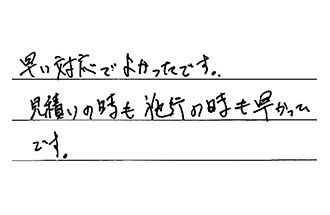 早い対応でよかったです。
見積りの時も施行の時も早かって
です。